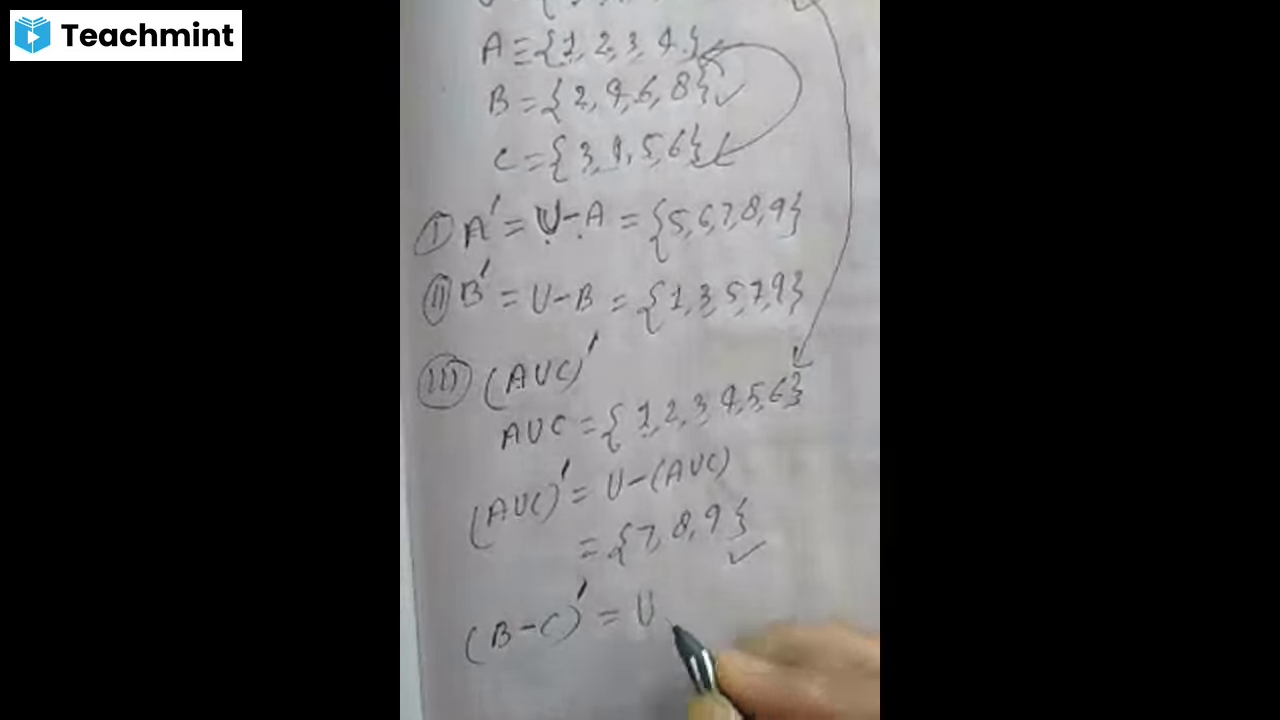 Teachmint
A = {1, 2, 3, 4}
B = {2, 4, 6, 8} ✓
C = {3, 4, 5, 6}
(I) A' = U - A = {5, 6, 7, 8, 9}
(II) B' = U - B = {1, 3, 5, 7, 9}
(III) (A U C)'
A U C = { 1, 2, 3, 4, 5, 6}
(A U C)' = U - (A U C)
= {7, 8, 9} ✓
(B - C)' = U